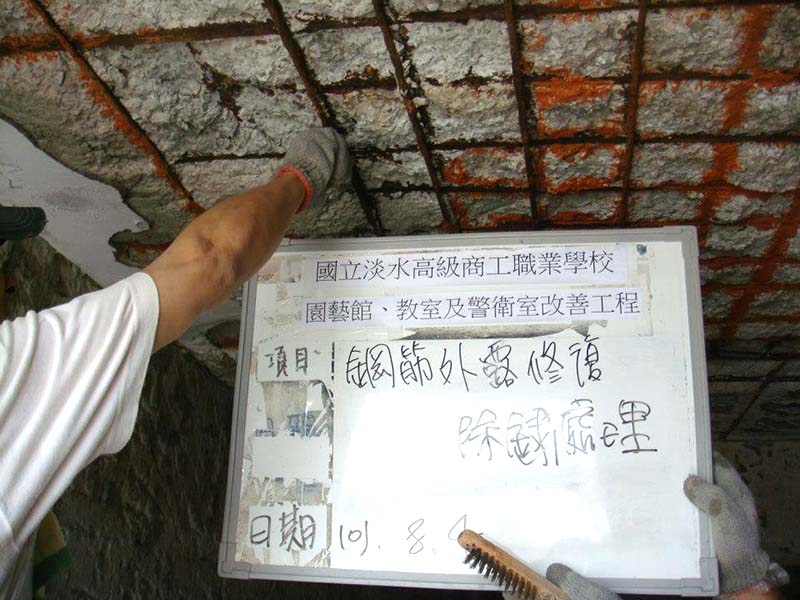 國立淡水高級商工職業學校
園藝館、教室及警衛室改善工程
項目 鋼筋外露修復
除銹處理
日期 101. 8.